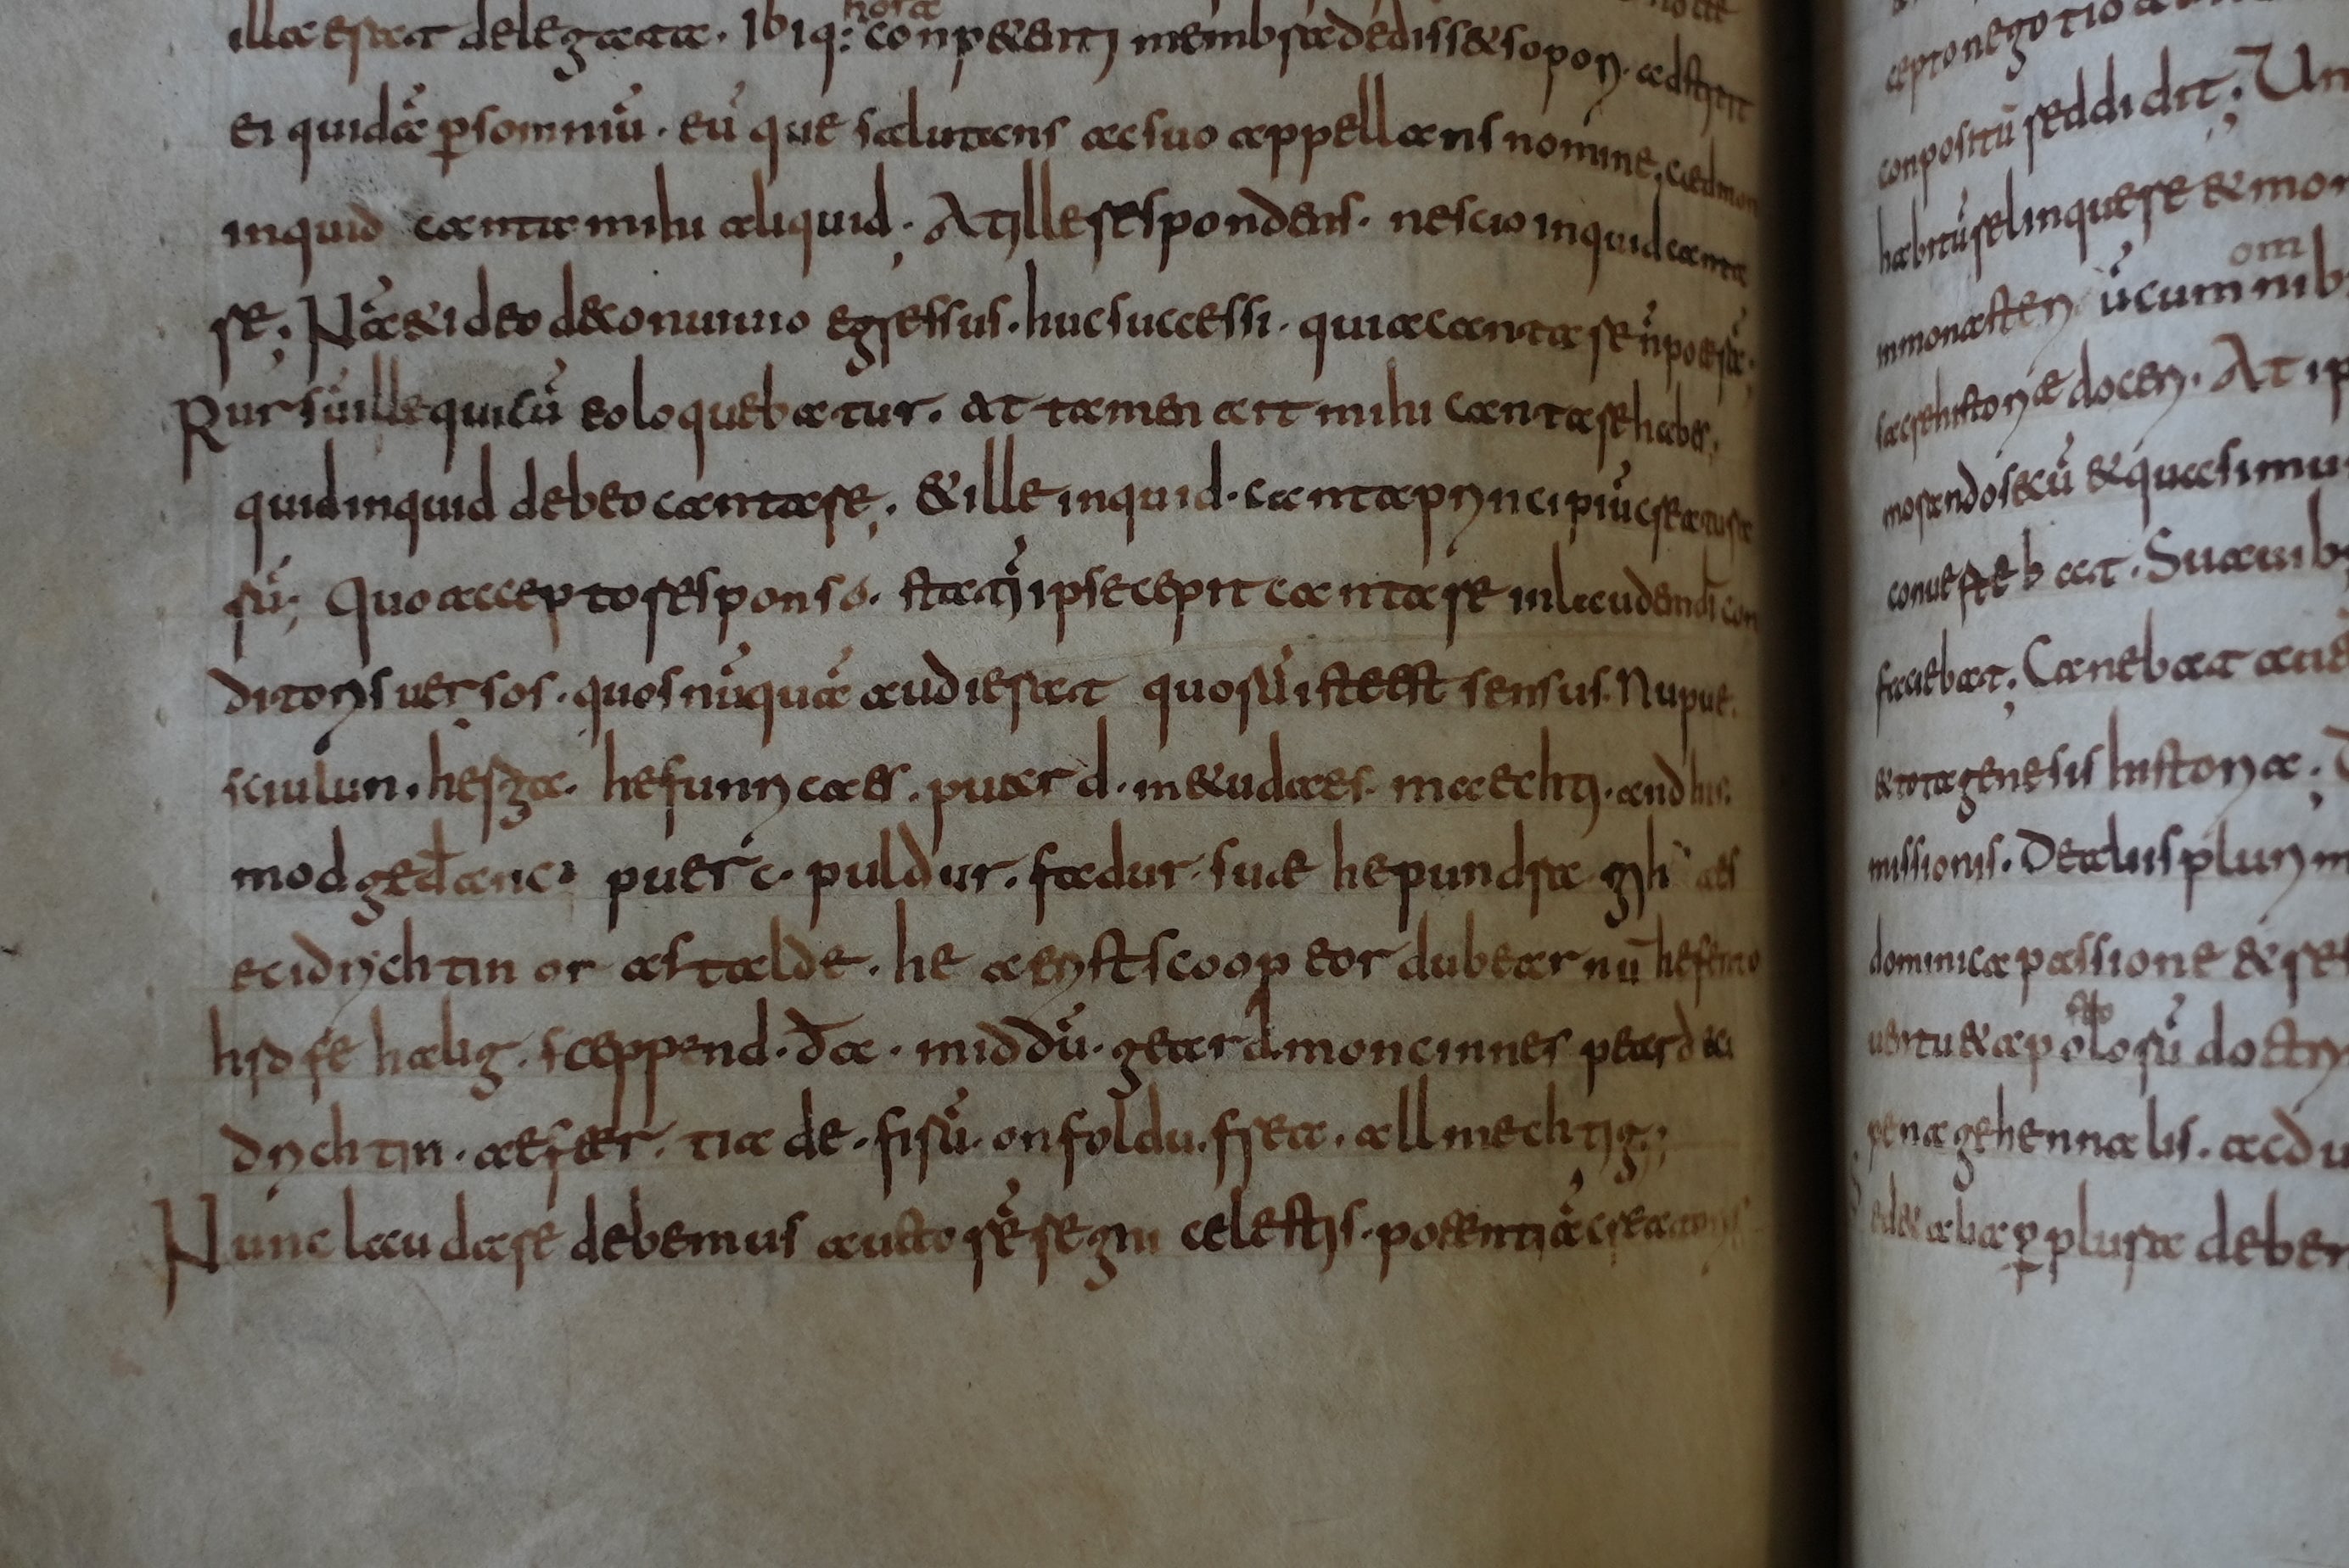 illa erat delegata. Ibiq: conpetenti hora membra dedisset sopori. adstitit
ei quidā ꝑsomniū. eū que salutans acsuo appellans nomine. cædmon
inquid canta mihi aliquid; At ille respondens. nescio inquid canta
re; Nā et ideo deconuiuio egressus. huc successi. quia cantare ñ poterā;
Rursū ille quicū eo loquebatur. at tamen ait mihi cantare habes;
quid inquid debeo cantare; et ille inquid. canta principiū creatura
rū; Quo accepto responso. statī ipse cepit cantare inlaudem dī con
ditoris uersos. quos nūquā audierat quorū iste est sensus. Nu pue.
sciulun. herga. hefunricaes. puard. metudaes. maechti. and his.
mod gedanc. puerc. puldur. fadur. sue he pundra gih aes
eci drichtin or astalde. he aerist scoop eordu bearnū hefento
hrofe halig. sceppend. đa. middū. geard. moncinnes peard eci
drichtin. aefter. tiade. firū. on foldu. frea. allmechtig;
Nunc laudare debemus auctorē regni celestis. potentiā creatoris
cepto negotio a
conpositū reddidit; Un
habitū relinquere et mon
inmonasteri ū cum omnib
sacre historiae doceri. At ip
morando secū et quasi mu
conuertebat. Suauib
faciebat; Canebat
et tota genesis historia;
missionis. De aduis plurim
dominica passione et re
uentu et apostolorū doctri
pena gehennalis. acdu
sed et alia ꝑplura deben